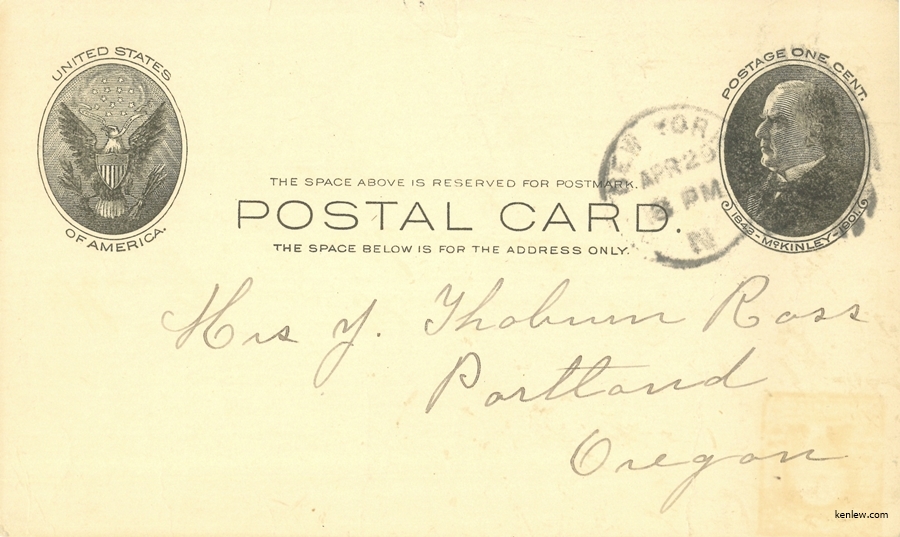 UNITED STATES
OF AMERICA.
POSTAGE ONE CENT.
1843-McKINLEY-1901.
NEW YORK
APR 2
PM
N
THE SPACE ABOVE IS RESERVED FOR POSTMARK.
POSTAL CARD.
THE SPACE BELOW IS FOR THE ADDRESS ONLY.
Mrs J. Thoburn Ross
Portland
Oregon
kenlew.com